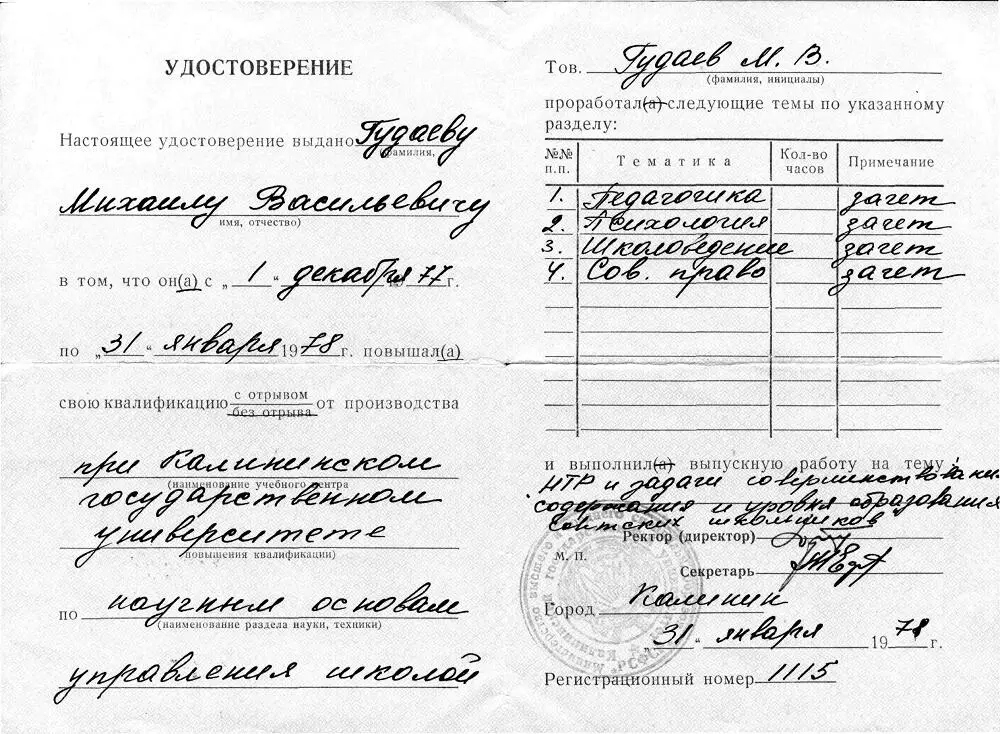 УДОСТОВЕРЕНИЕ
Настоящее удостоверение выдано Гудаеву
(фамилия,
Михаилу Васильевичу
имя, отчество)
в том, что он(а) с „1“ декабря 77 г.
по „31“ января 1978 г. повышал(а)
свою квалификацию с отрывом от производства
без отрыва
при Калининском
(наименование учебного центра
государственном
университете
повышения квалификации)
по научным основам
(наименование раздела науки, техники)
управления школой
Тов. Гудаев М. В.
(фамилия, инициалы)
проработал(а) следующие темы по указанному
разделу:
№№ п.п. Тематика Кол-во часов Примечание
1. Педагогика зачет
2. Психология зачет
3. Школоведение зачет
4. Сов. право зачет
и выполнил(а) выпускную работу на тему
НТР и задачи совершенствования
содержания и уровня образования
советских школьников
Ректор (директор)
М. П.
Секретарь
Город Калинин
„31“ января 1978 г.
Регистрационный номер 1115